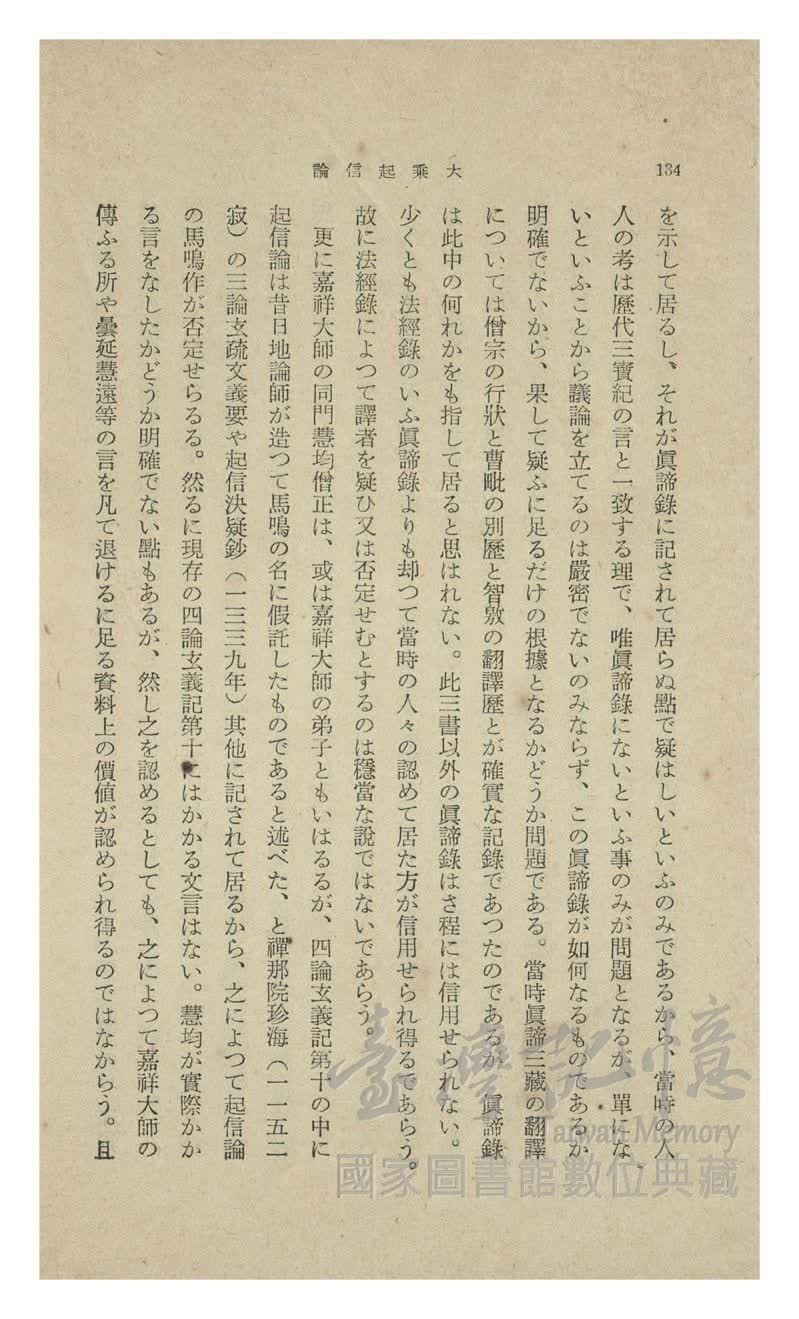 134
大乘起信論
を示して居るし、それが眞諦錄に記されて居らぬ點で疑はしいといふのみであるから、當時の人
人の考は歷代三寶紀の言と一致する理で、唯眞諦錄にないといふ事のみが問題となるが、單にな
いといふことから議論を立てるのは嚴密でないのみならず、この眞諦錄が如何なるものであるか
明確でないから、果して疑ふに足るだけの根據となるかどうか問題である。當時眞諦三藏の翻譯
については僧宗の行狀と曹毗の別歷と智敫の翻譯歷とが確實な記錄であつたのであるが、眞諦錄
は此中の何れかをも指して居ると思はれない。此三書以外の眞諦錄はさ程には信用せられない。
少くとも法經錄のいふ眞諦錄よりも却つて當時の人々の認めて居た方が信用せられ得るであらう。
故に法經錄によつて譯者を疑ひ又は否定せむとするのは穩當な說ではないであらう。
更に嘉祥大師の同門慧均僧正は、或は嘉祥大師の弟子ともいはるるが、四論玄義記第十の中に
起信論は昔日地論師が造つて馬鳴の名に假託したものであると述べた、と禪那院珍海（一一五二
寂）の三論玄疏文義要や起信決疑鈔（一三三九年）其他に記されて居るから、之によつて起信論
の馬鳴作が否定せらるる。然るに現存の四論玄義記第十にはかかる文言はない。慧均が實際かか
る言をなしたかどうか明確でない點もあるが、然し之を認めるとしても、之によつて嘉祥大師の
傳ふる所や曇延慧遠等の言を凡て退けるに足る資料上の價値が認められ得るのではなからう。且
臺灣記憶
Taiwan Memory
國家圖書館數位典藏